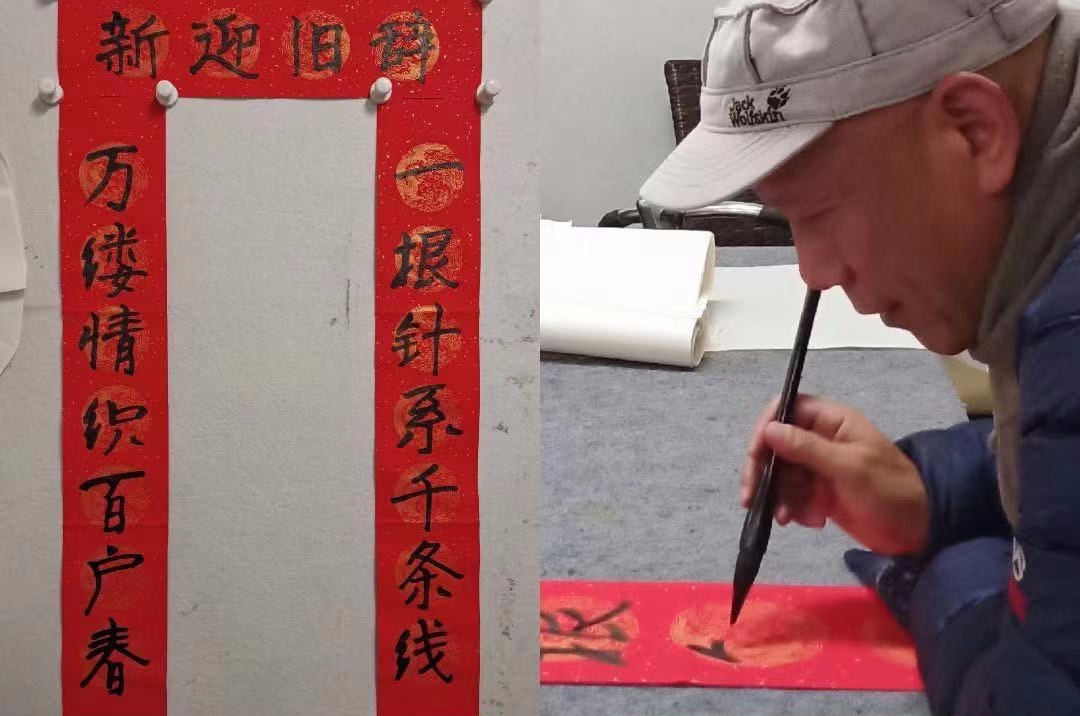 辞旧迎新
一根针系千条线
万缕情织百户春
Jack
Wolfskin